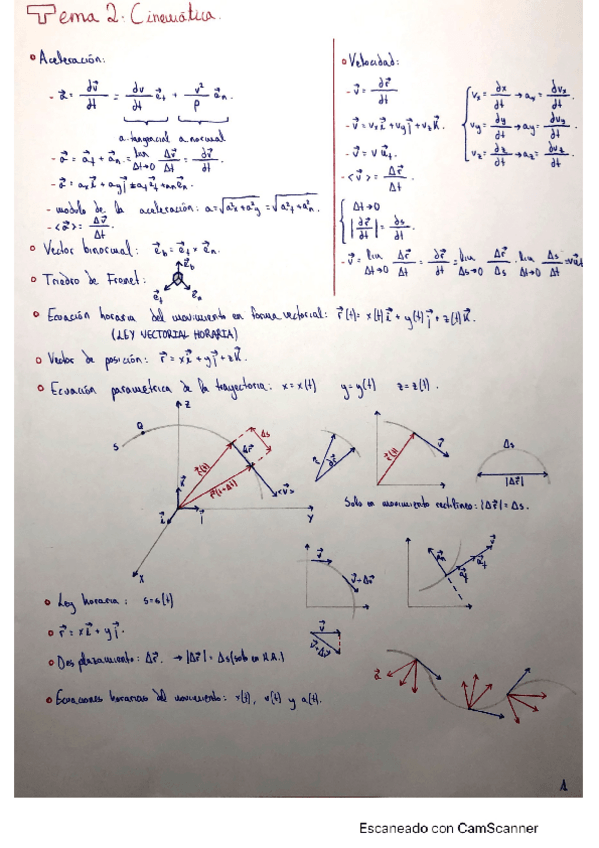 Tema 2: Cinemática.
Aceleración:
- a⃗ = dv⃗/dt = dv/dt e⃗t + v²/ρ e⃗n.
a tangencial a normal
- a⃗ = a⃗t + a⃗n = lim Δt→0 Δv⃗/Δt = dv⃗/dt
- modulo de la aceleración: a = √a²x + a²y = √a²t + a²n.
- <a⃗> = Δv⃗/Δt.
Vector binormal: e⃗b = e⃗t × e⃗n.
Triedro de Frenet:
e⃗b
e⃗t e⃗n
Velocidad:
- v⃗ = ∂r⃗/∂t
- v⃗ = vx i⃗ + vy j⃗ + vz k⃗.
- v⃗ = v u⃗t.
- <v⃗> = Δr⃗/Δt.
Δt→0
|∂r⃗/∂t| = ∂s/∂t.
- v⃗ = lim Δt→0 Δr⃗/Δt = ∂r⃗/∂t = lim Δs→0 Δr⃗/Δs · lim Δt→0 Δs/Δt = v u⃗t
vx = ∂x/∂t → ax = ∂vx/∂t.
vy = ∂y/∂t → ay = ∂vy/∂t
vz = ∂z/∂t → az = ∂vz/∂t.
Ecuación horaria del movimiento en forma vectorial: r⃗(t) = x(t) i⃗ + y(t) j⃗ + z(t) k⃗.
(LEY VECTORIAL HORARIA)
Vector de posición: r⃗ = x i⃗ + y j⃗ + z k⃗.
Ecuación parametrica de la trayectoria: x = x(t) y = y(t) z = z(t).
Z
Q
S
Δs
Δr⃗
r⃗(t)
r⃗(t+Δt)
<v⃗>
i⃗ j⃗
Y
X
r⃗(t)
v⃗
Δs
|Δr⃗|
Solo en movimiento rectilíneo: |Δr⃗| = Δs.
v⃗
v⃗+Δv⃗
a⃗n
a⃗t
v⃗
v⃗
v⃗+Δv⃗
Ley horaria: s = s(t)
r⃗ = x i⃗ + y j⃗.
Desplazamiento: Δr⃗. → |Δr⃗| = Δs (solo en M.R.)
a⃗
Ecuaciones horarias del movimiento: r(t), v(t) y a(t).
1
Escaneado con CamScanner